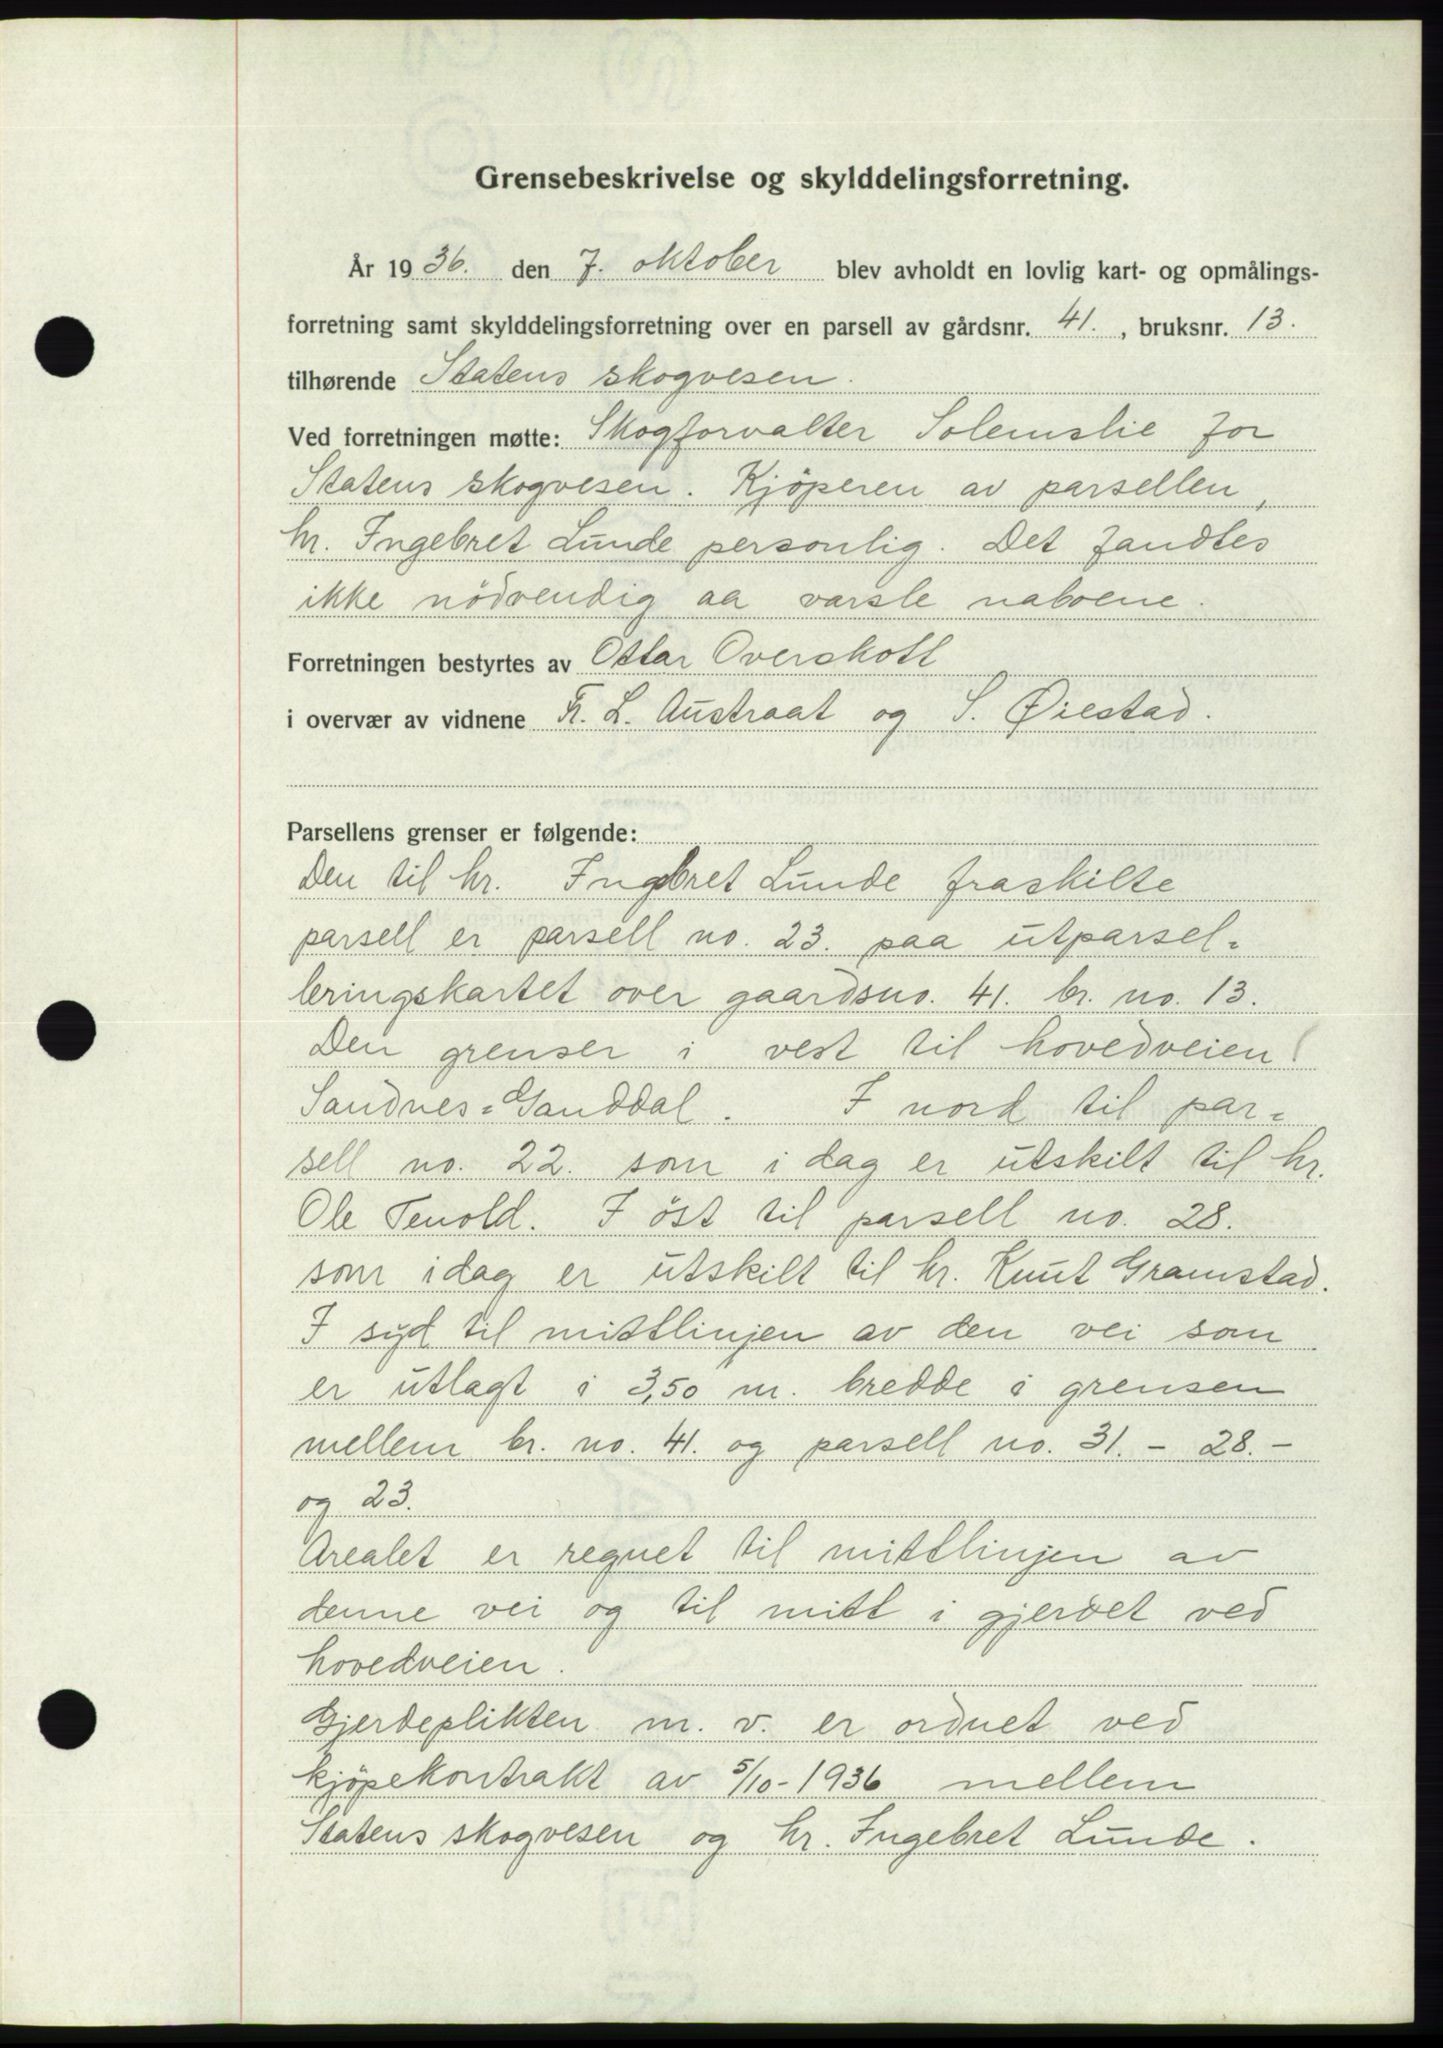 Grensebeskrivelse og skylddelingsforretning.
År 1936. den 7. oktober blev avholdt en lovlig kart- og opmålings-
forretning samt skylddelingsforretning over en parsell av gårdsnr. 41., bruksnr. 13.
tilhørende Statens skogvesen.
Ved forretningen møtte: Skogforvalter Solemslie for
Statens skogvesen. Kjöperen av parsellen,
hr. Ingebret Lunde personlig. Det fandtes
ikke nödvendig aa varsle naboene.
Forretningen bestyrtes av Ottar Overskott
i overvær av vidnene Fr. L. Austraat og S. Øiestad.
Parsellens grenser er følgende:
Den til hr. Ingebret Lunde fraskilte
parsell er parsell no. 23. paa utparsel=
leringskartet over gaardsno. 41. br. no. 13.
Den grenser i vest til hovedveien
Sandnes=Ganddal. I nord til par=
sell no. 22. som i dag er utskilt til hr.
Ole Tenold. I öst til parsell no. 28.
som idag er utskilt til hr. Knut Gramstad.
I syd til mittlinjen av den vei som
er utlagt i 3,50 m. bredde i grensen
mellem br. no. 41. og parsell no. 31. - 28. -
og 23.
Arealet er regnet til mittlinjen av
denne vei og til mitt i gjerdet ved
hovedveien.
Gjerdeplikten m. v. er ordnet ved
kjöpekontrakt av 5/10-1936 mellem
Statens skogvesen og hr. Ingebret Lunde.